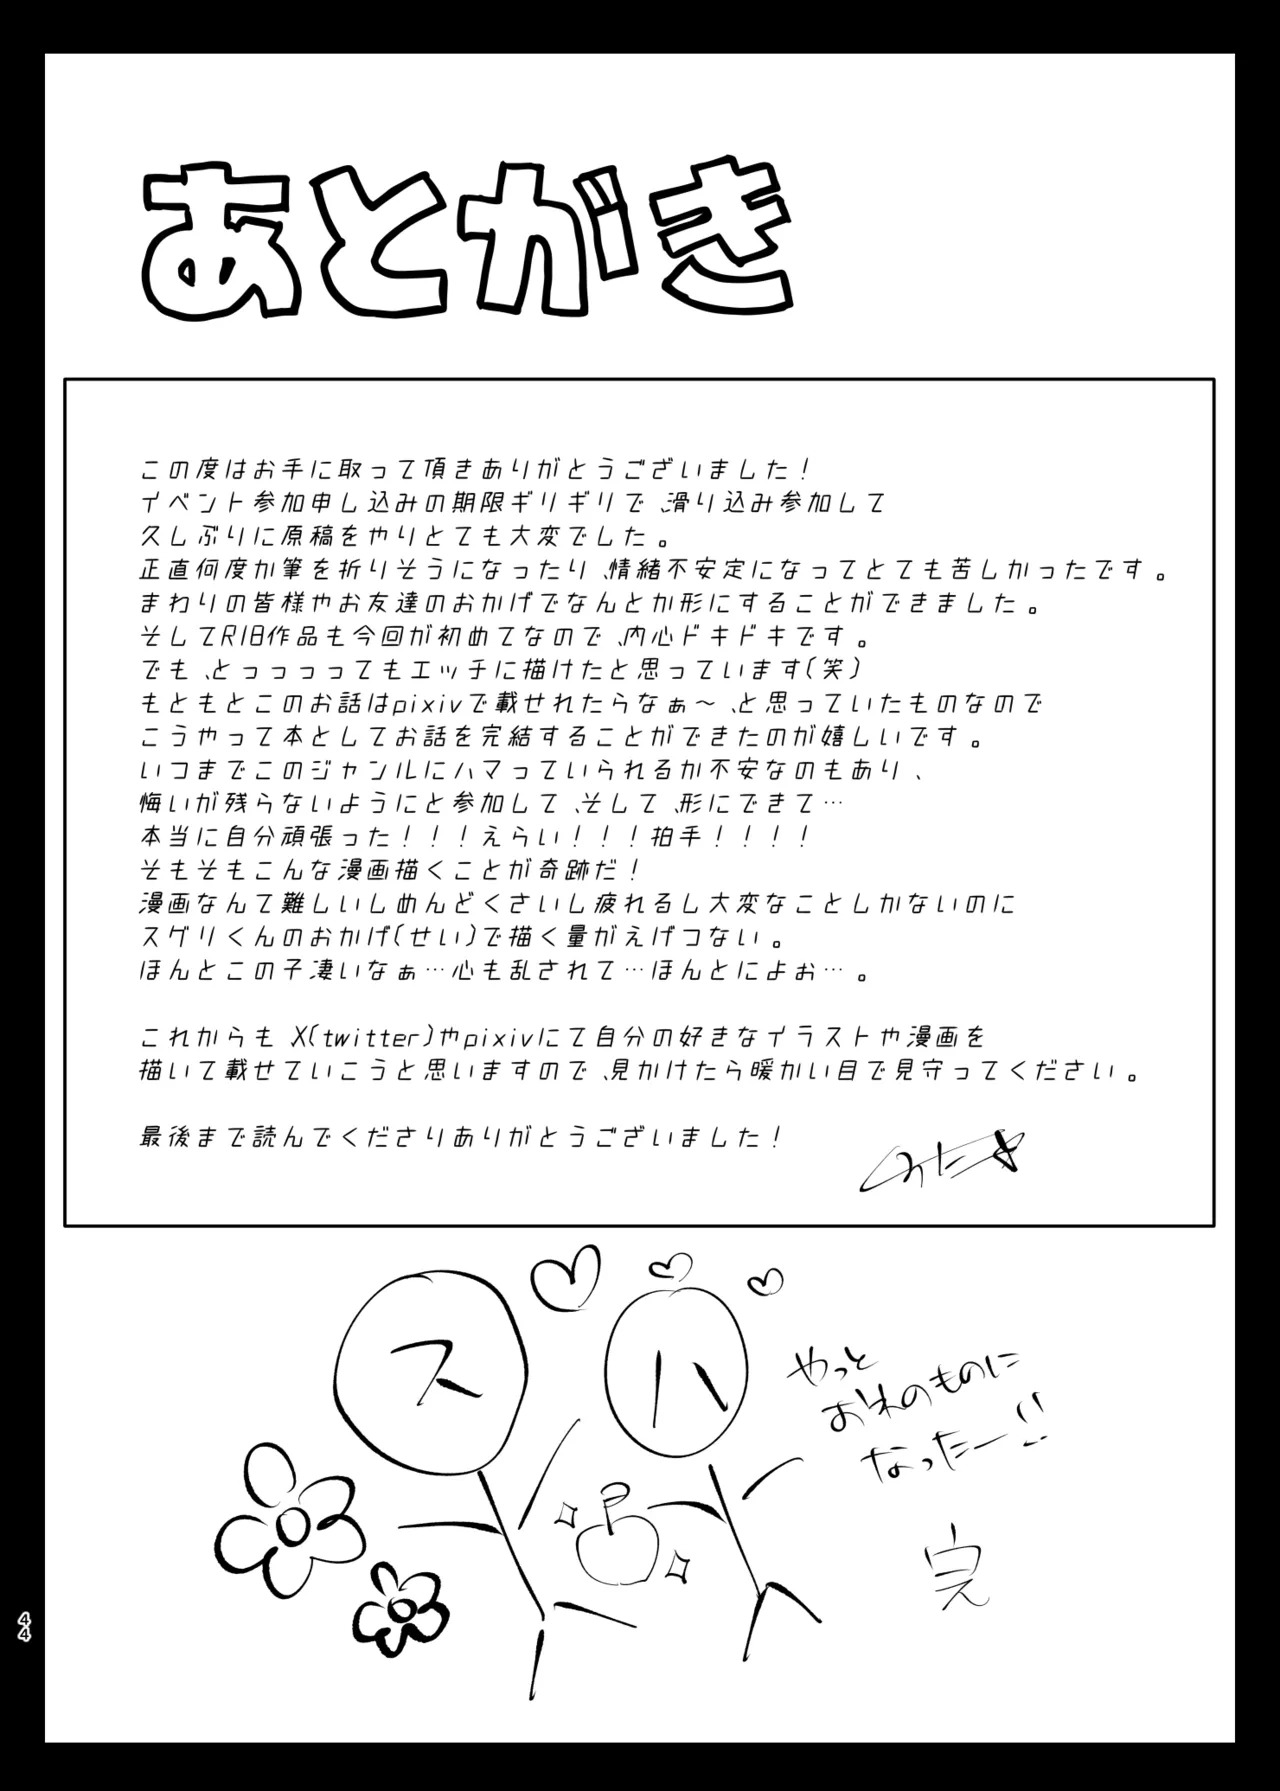 あとがき
この度はお手に取って頂きありがとうございました!
イベント参加申し込みの期限ギリギリで、滑り込み参加して
久しぶりに原稿をやりとても大変でした。
正直何度か筆を折りそうになったり、情緒不安定になってとても苦しかったです。
まわりの皆様やお友達のおかげでなんとか形にすることができました。
そしてR18作品も今回が初めてなので、内心ドキドキです。
でも、とっっっってもエッチに描けたと思っています(笑)
もともとこのお話はpixivで載せれたらなぁ～、と思っていたものなので
こうやって本としてお話を完結することができたのが嬉しいです。
いつまでこのジャンルにハマっていられるか不安なのもあり、
悔いが残らないようにと参加して、そして、形にできて…
本当に自分頑張った!!!えらい!!!拍手!!!!
そもそもこんな漫画描くことが奇跡だ!
漫画なんて難しいしめんどくさいし疲れるし大変なことしかないのに
スグリくんのおかげ(せい)で描く量がえげつない。
ほんとこの子凄いなぁ…心も乱されて…ほんとによぉ…。
これからも X(twitter)やpixivにて自分の好きなイラストや漫画を
描いて載せていこうと思いますので、見かけたら暖かい目で見守ってください。
最後まで読んでくださりありがとうございました!
ス
ハ
やっと
おれのものに
なったー!!
完
44